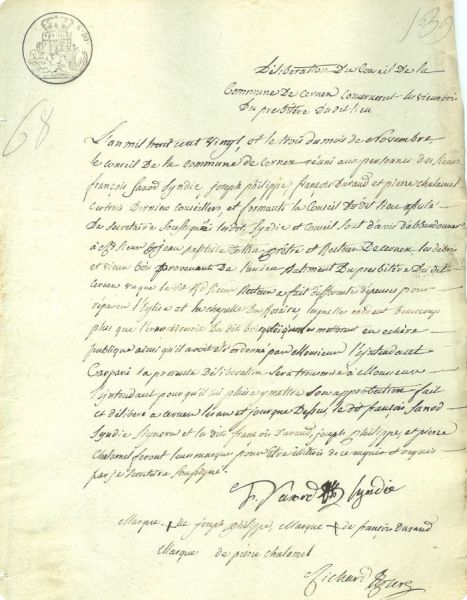 139
C. 30
68
Déliberation Du Conseil De la
Commune De Cernex Concernent les vieux bois
Du presbitère Dudit lieu
L'an mil huit cent vingt et le trois du mois de Novembre
le conseil De la commune de Cernex réuni aux personnes des sieurs
françois Sanod Syndic joseph philippe, françois Duraud et pierre chalamel
ces trois Derniers conseillers et formants le Conseil Dudit lieu assisté
Du secretaire soussigné ladit Syndic et Conseil sont d'avis d'abbandonner
à Rd Sieur jean prêtre et Recteur De cernex les debris
et vieux bois provenants De l'ancien batiment Du presbitère Dudit
cernex vu que le dit Rd Sieur Recteur a fait differente dépenses pour
réparer l'Eglise et la chapelle Du Rosaire, laquelles montent beaucoup
plus que l'on retireroit Du dit bois quoique mettant en echère
publique ainsi qu'il avoit été ordonné par Monsieur l'intendant
la presente Déliberation sera transmise à Monsieur
l'intendant pour qu'il lui plaise y mettre son approbation fait
et déliberé à cernex les an et jour que Dessus, le dit françois Sanod
Syndic signera et les dits françois Duraud, joseph philippe, et pierre
Chalamel feront leur marque pour être illitérés de ce enquis et requis
par je secretaire soussigné
f. Sanod Syndic
Marque + de joseph philippe, Marque + de françois Duraud
Marque de pierre chalamel
Richard